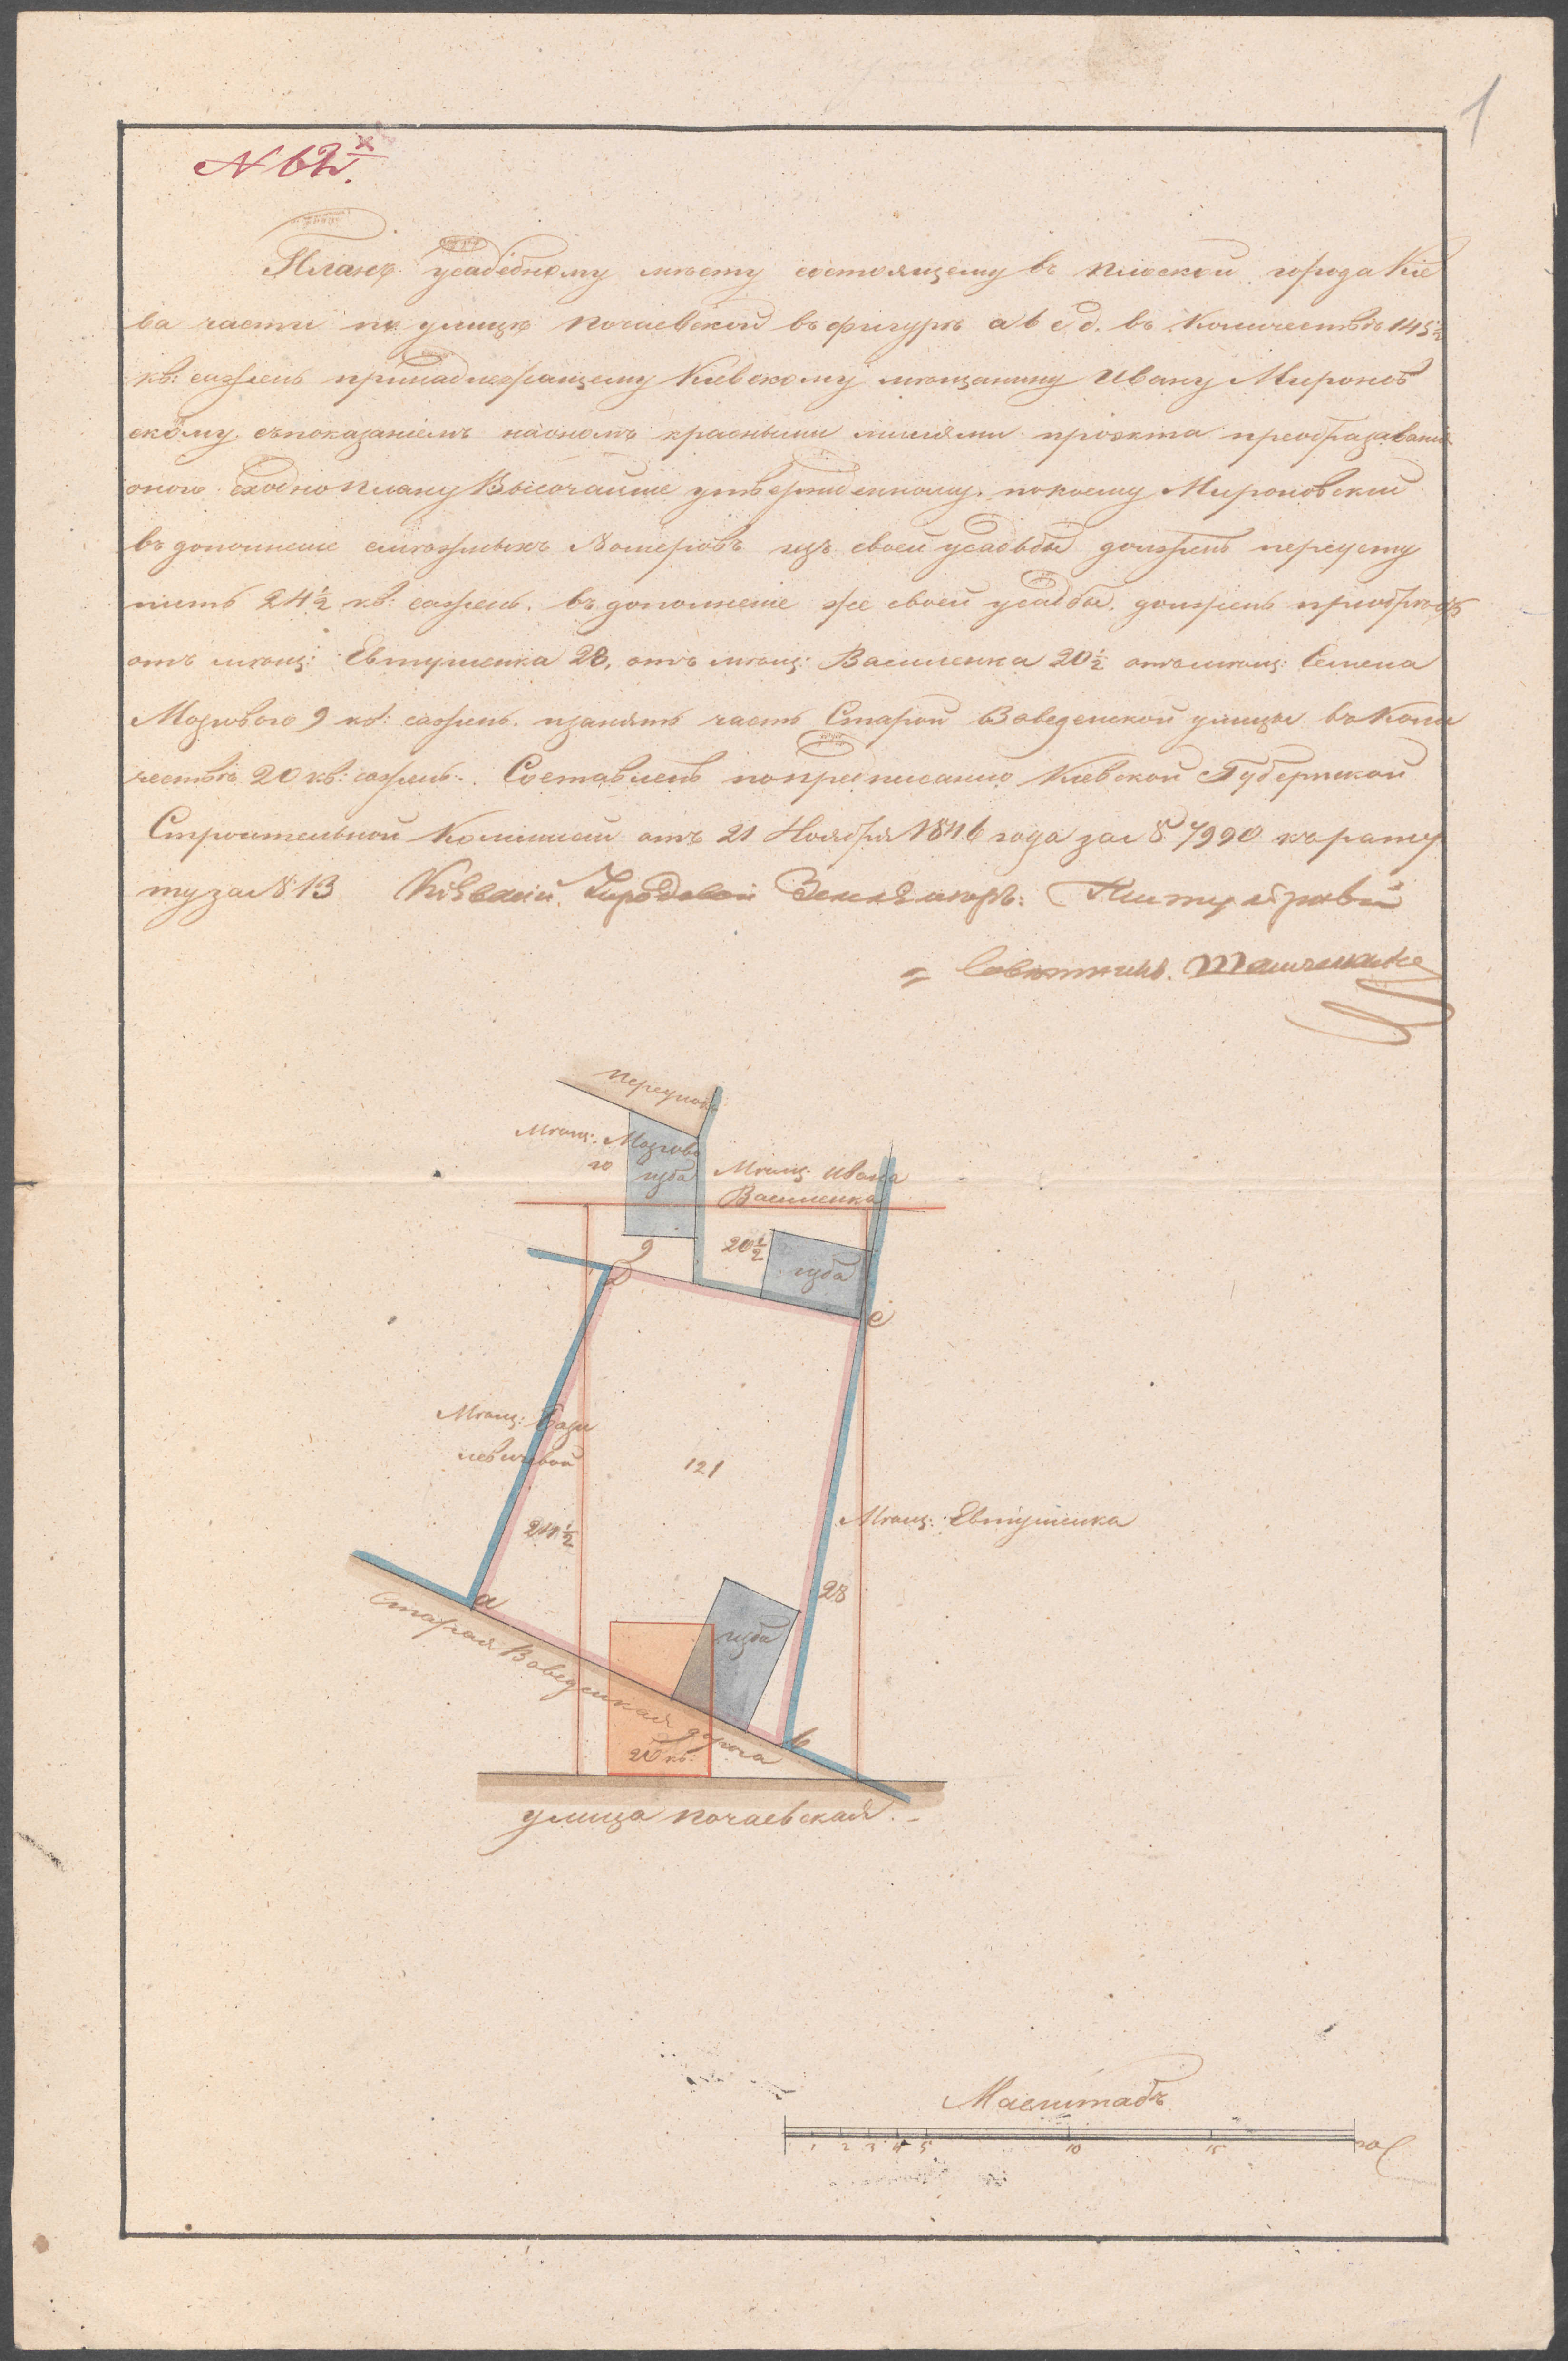 1
N 62.
Планъ усадебному мѣсту состоящему въ плоской города Кіе
ва части по улицѣ почаевской въ фигурѣ а b c d. въ Количествѣ 145½
кв: сажень принадлежащему Кіевскому мѣщанину Ивану Миронов
скому. съпоказаніемъ наономъ красными линіями проэкта преобразаванія
оного сходно плану Высочайше утвержденному. покоему Мироновскій
въ дополненіе смѣжныхъ Номеровъ изъ своей усадьбы долженъ переусту
пить 24½ кв: сажень. въ дополненіе же своей усадбы. долженъ приобрѣсть
отъ мѣщ: Евтушенка 28, отъ мѣщ: Василенка 20½ отъ мѣщ: Семена
Мозгового 9 кв: сажень. изанять часть Старой Воведенской улицы въ Коли
чествѣ 20 кв: сажень. Составленъ попредписанію Кіевской Губернской
Строительной Комиссіи отъ 21 Ноября 1846 года за № 7990 къ рапор
ту за № 13 Кіевскій Городовой Землемѣръ: Титулярный
Совѣтникъ
переулокъ
Мѣщ: Мозгово
го
изба
Мѣщ: Ивана
Василенка
9
20½
изба
d
c
Мѣщ: Бази
левичевой
121
24½
Мѣщ: Евтушенка
28
a
изба
Старая Воведенская дорога
b
20 кв:
улица почаевская.
Масштабъ
1 2 3 4 5 10 15 20 С